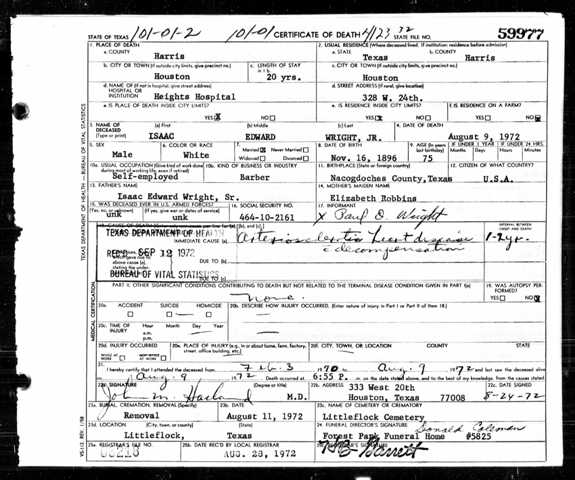 101-01-2 101-01 4123 32
STATE OF TEXAS CERTIFICATE OF DEATH STATE FILE NO. 59977
1. PLACE OF DEATH 2. USUAL RESIDENCE (Where deceased lived. If institution: residence before admission)
a. COUNTY a. STATE b. COUNTY
Harris Texas Harris
b. CITY OR TOWN (If outside city limits, give precinct no.) c. LENGTH OF STAY in 1 b. c. CITY OR TOWN (If outside city limits, give precinct no.)
Houston 20 yrs. Houston
d. NAME OF (If not in hospital, give street address) HOSPITAL OR INSTITUTION d. STREET ADDRESS (If rural, give location)
Heights Hospital 328 W. 24th.
e. IS PLACE OF DEATH INSIDE CITY LIMITS? e. IS RESIDENCE INSIDE CITY LIMITS? f. IS RESIDENCE ON A FARM?
YES X NO YES X NO YES NO
3. NAME OF DECEASED (Type or print) (a) First (b) Middle (c) Last 4. DATE OF DEATH
ISAAC EDWARD WRIGHT, JR. August 9, 1972
5. SEX 6. COLOR OR RACE 7. Married X Never Married Widowed Divorced 8. DATE OF BIRTH 9. AGE (In years last birthday) IF UNDER 1 YEAR Months Days IF UNDER 24 HRS. Hours Min.
Male White Nov. 16, 1896 75
10a. USUAL OCCUPATION (Give kind of work done during most of working life, even if retired) 10b. KIND OF BUSINESS OR INDUSTRY 11. BIRTHPLACE (State or foreign country) 12. CITIZEN OF WHAT COUNTRY?
Self-employed Barber Nacogdoches County, Texas U.S.A.
13. FATHER'S NAME 14. MOTHER'S MAIDEN NAME
Isaac Edward Wright, Sr. Elizabeth Robbins
15. WAS DECEASED EVER IN U.S. ARMED FORCES? (If yes, give war or dates of service) 16. SOCIAL SECURITY NO. 17. INFORMANT
unk unk 464-10-2161 X Paul D. Wright
TEXAS DEPARTMENT OF HEALTH
IMMEDIATE CAUSE (a) Arteriosclerotic heart disease 1-2 yr.
REC SEP 12 1972 DUE TO (b) decompensation
BUREAU OF VITAL STATISTICS DUE TO (c)
PART II. OTHER SIGNIFICANT CONDITIONS CONTRIBUTING TO DEATH BUT NOT RELATED TO THE TERMINAL DISEASE CONDITION GIVEN IN PART I(a) 19. WAS AUTOPSY PERFORMED?
none YES NO X
20a. ACCIDENT SUICIDE HOMICIDE 20b. DESCRIBE HOW INJURY OCCURRED. (Enter nature of injury in Part I or Part II of item 18.)
20c. TIME OF INJURY Hour a.m. p.m. Month Day Year
20d. INJURY OCCURRED 20e. PLACE OF INJURY (e.g. in or about home, farm, factory, street, office building, etc.) 20f. CITY, TOWN, OR LOCATION COUNTY STATE
21. I hereby certify that I attended the deceased from Feb 3 1970 to Aug. 9 1972 and last saw the deceased alive
Aug. 9 1972 Death occurred at 6:55 P. m on the date stated above, and to the best of my knowledge, from the causes stated.
22a. SIGNATURE (Degree or title) 22b. ADDRESS 333 West 20th 22c. DATE SIGNED
M.D. Houston, Texas 77008 8-24-72
23a. BURIAL, CREMATION, REMOVAL (Specify) 23b. DATE 23c. NAME OF CEMETERY OR CREMATORY
Removal August 11, 1972 Littleflock Cemetery
23d. LOCATION (City, town, or county) (State) 24. FUNERAL DIRECTOR'S SIGNATURE Donald Coleman
Littleflock, Texas Forest Park Funeral Home #5825
25a. REGISTRAR'S FILE NO. 25b. DATE REC'D BY LOCAL REGISTRAR
AUG. 28, 1972 Barrett
TEXAS DEPARTMENT OF HEALTH - BUREAU OF VITAL STATISTICS
MEDICAL CERTIFICATION